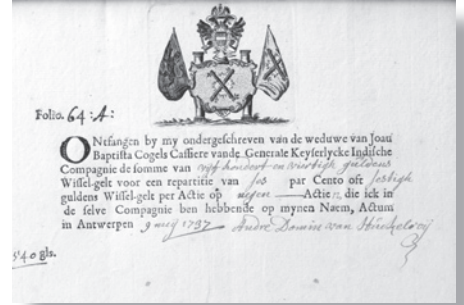 Folio. 64 : A :
ONtfangen by my ondergeschreven van de weduwe van Joan
Baptista Cogels Cassiere vande Generale Keyserlycke Indische
Compagnie de somme van vijf hondert en viertigh guldens
Wissel-gelt voor een repartitie van ses par Cento oft sestigh
guldens Wissel-gelt per Actie op negen Actien, die ick in
de selve Compagnie ben hebbende op mynen Naem, Actum
in Antwerpen 9 meij 1737 André Domin van
540 gls.